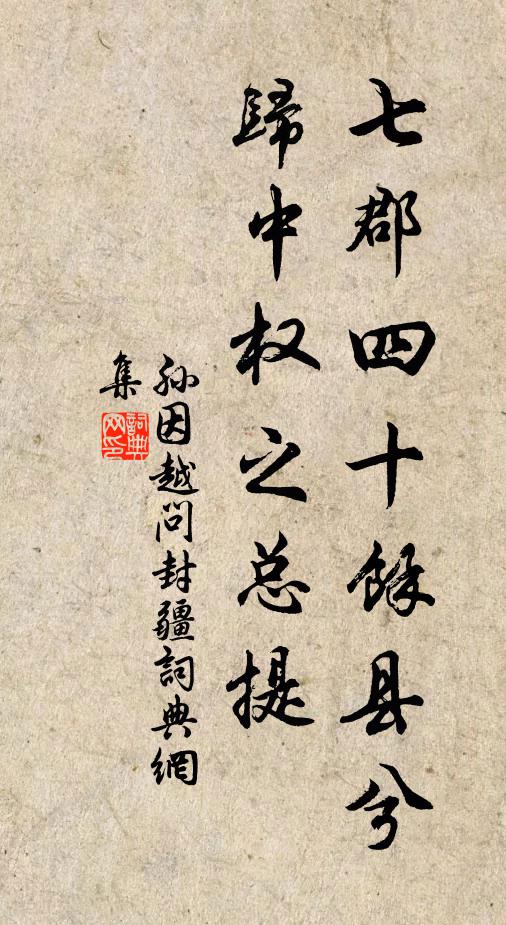 七郡四十餘县兮
歸中权之总提
孙因越问封疆詞典網
集
詞典
网印